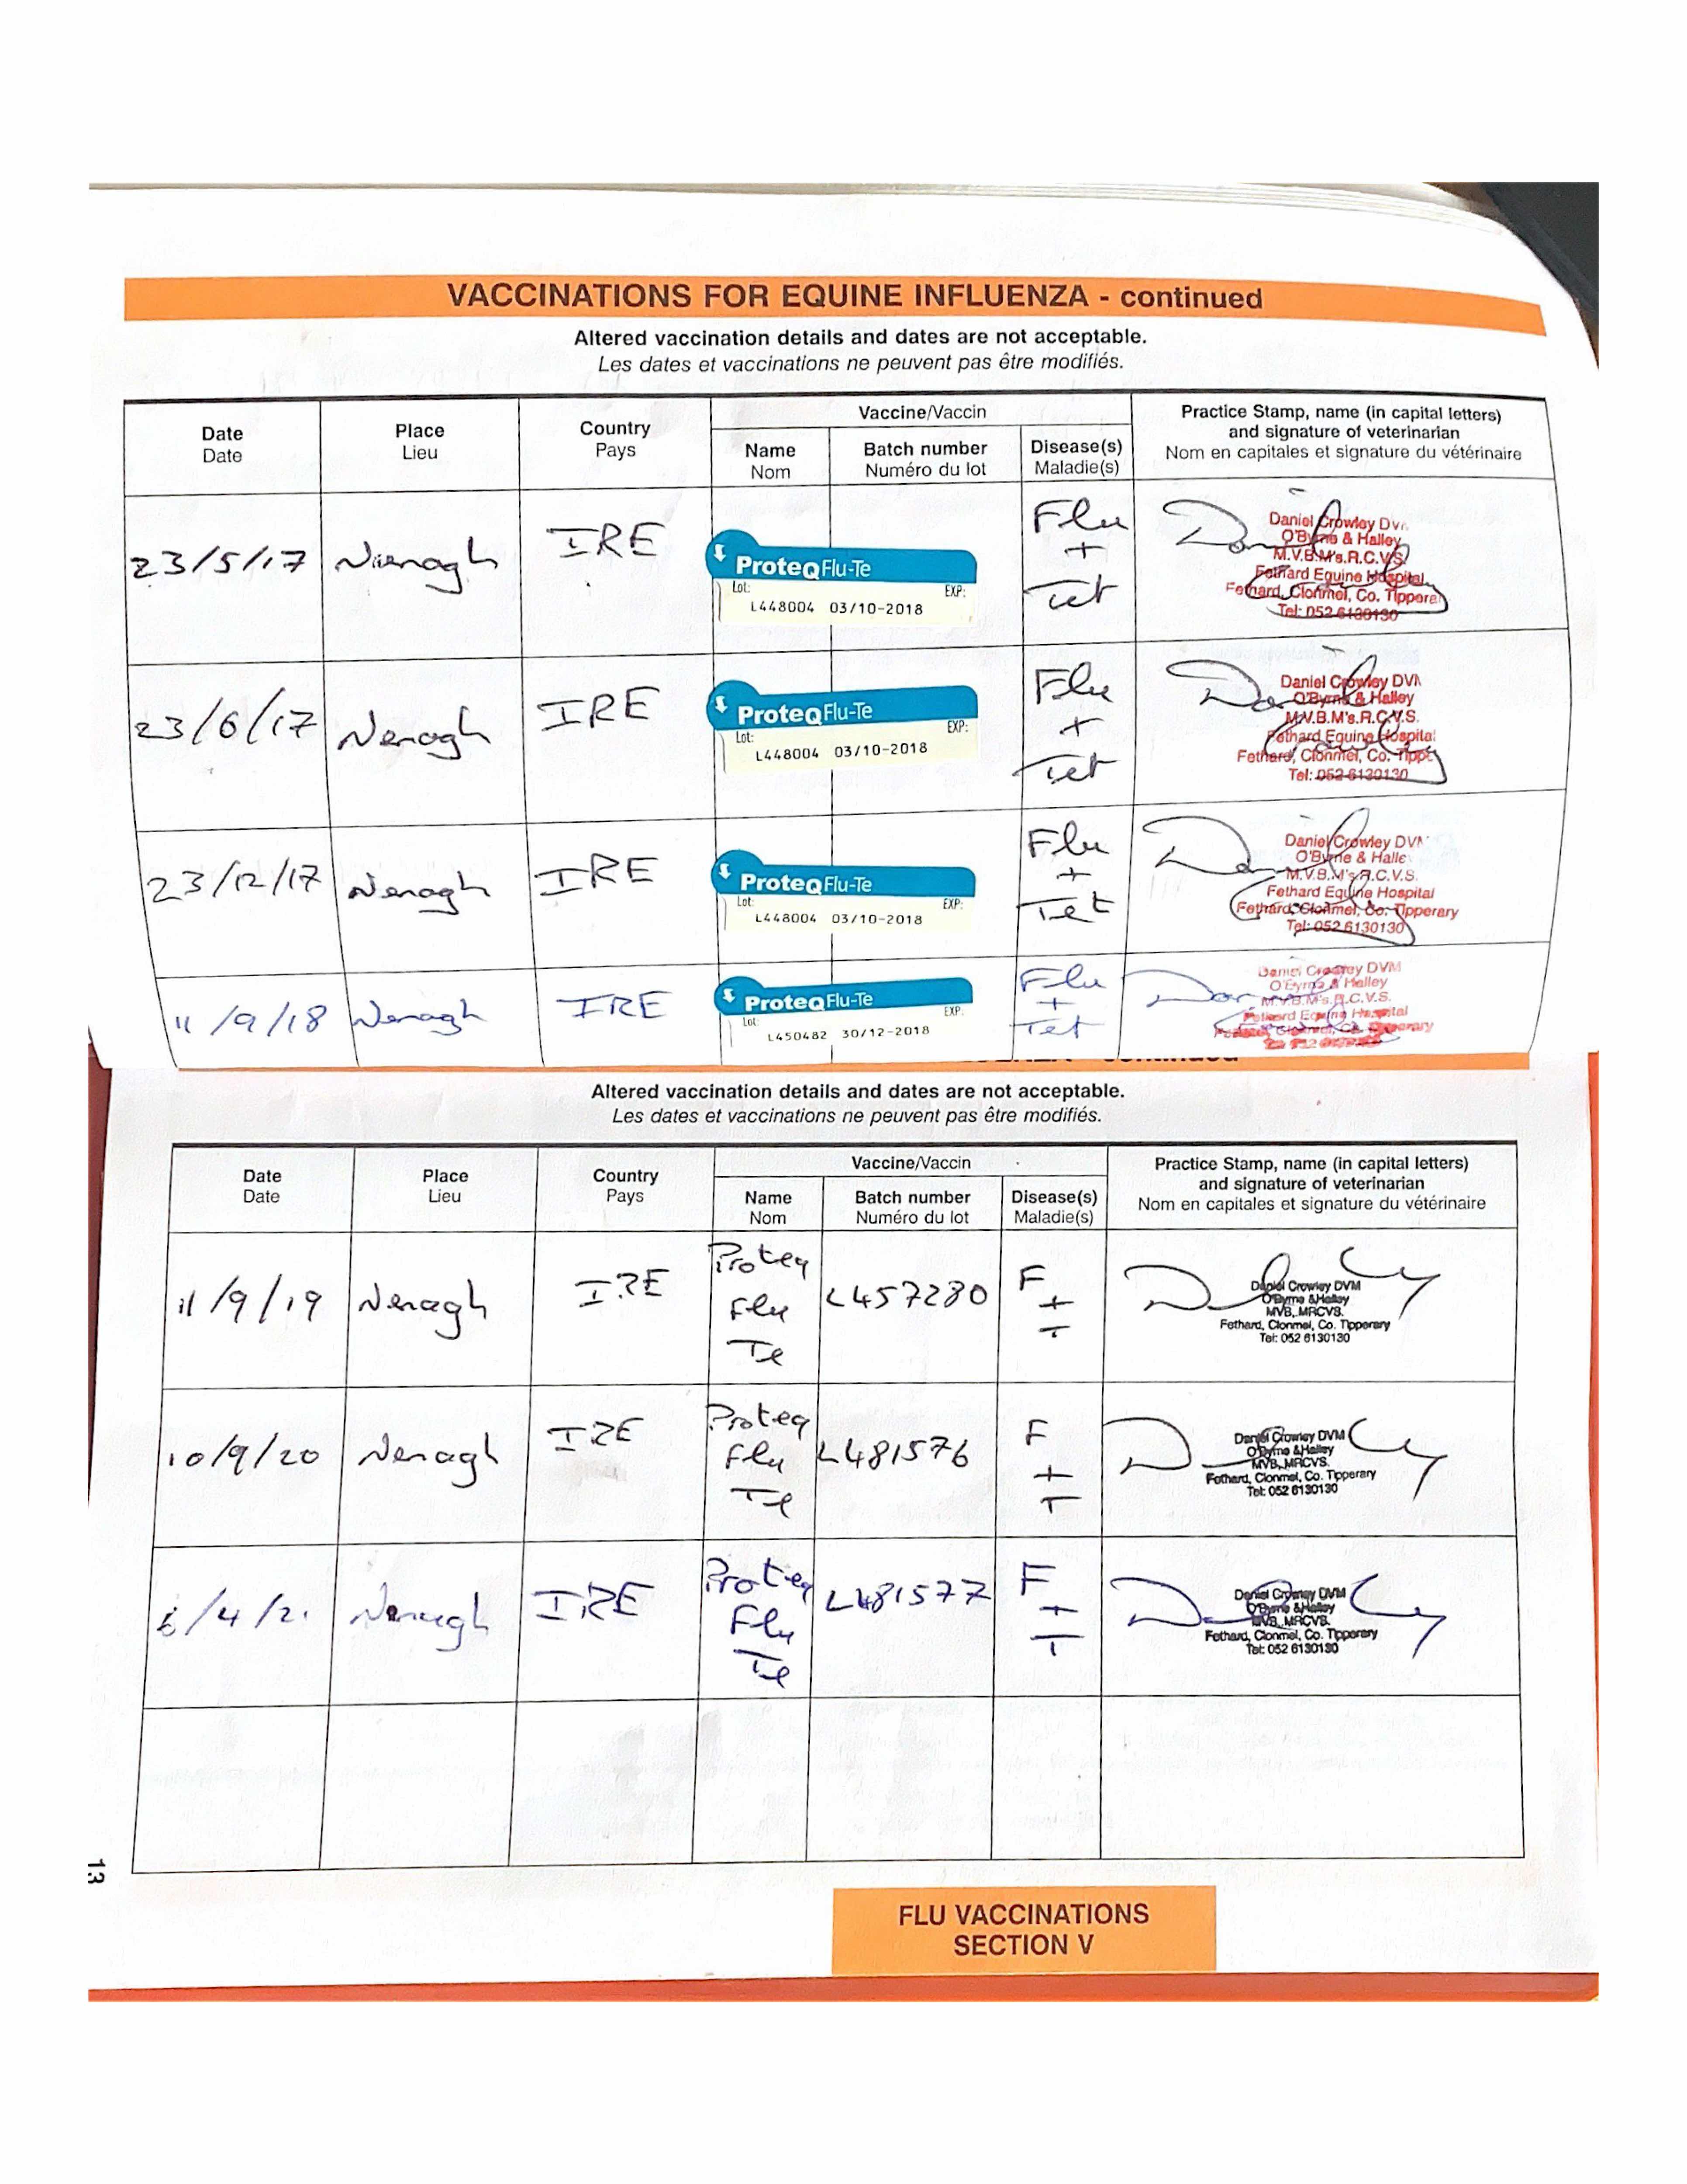 VACCINATIONS FOR EQUINE INFLUENZA - continued
Altered vaccination details and dates are not acceptable.
Les dates et vaccinations ne peuvent pas être modifiés.
Date
Date
Place
Lieu
Country
Pays
Vaccine/Vaccin
Name
Nom
Batch number
Numéro du lot
Disease(s)
Maladie(s)
Practice Stamp, name (in capital letters)
and signature of veterinarian
Nom en capitales et signature du vétérinaire
23/5/17
Nenagh
IRE
ProteqFlu-Te
Lot: EXP:
L448004 03/10-2018
Flu
+
Tet
Daniel Crowley DV
O'Byrne & Halley
M.V.B.M's.R.C.V.S.
Fethard Equine Hospital
Fethard, Clonmel, Co. Tippera
Tel: 052 6130130
23/6/17
Nenagh
IRE
ProteqFlu-Te
Lot: EXP:
L448004 03/10-2018
Flu
+
Tet
Daniel Crowley DVM
O'Byrne & Halley
M.V.B.M's.R.C.V.S.
Fethard Equine Hospital
Fethard, Clonmel, Co. Tipp
Tel: 052 6130130
23/12/17
Nenagh
IRE
ProteqFlu-Te
Lot: EXP:
L448004 03/10-2018
Flu
+
Tet
Daniel Crowley DVM
O'Byrne & Halle
M.V.B.M's.R.C.V.S.
Fethard Equine Hospital
Fethard, Clonmel, Co. Tipperary
Tel: 052 6130130
11/9/18
Nenagh
IRE
ProteqFlu-Te
Lot: EXP:
L450482 30/12-2018
Flu
+
Tet
Daniel Crowley DVM
O'Byrne & Halley
M.V.B.M's.R.C.V.S.
Fethard Equine Hospital
Altered vaccination details and dates are not acceptable.
Les dates et vaccinations ne peuvent pas être modifiés.
Date
Date
Place
Lieu
Country
Pays
Vaccine/Vaccin
Name
Nom
Batch number
Numéro du lot
Disease(s)
Maladie(s)
Practice Stamp, name (in capital letters)
and signature of veterinarian
Nom en capitales et signature du vétérinaire
11/9/19
Nenagh
IRE
Proteq
Flu
Te
L457280
F
+
T
Daniel Crowley DVM
O'Byrne & Halley
MVB, MRCVS.
Fethard, Clonmel, Co. Tipperary
Tel: 052 6130130
10/9/20
Nenagh
IRE
Proteq
Flu
Te
L481576
F
+
T
Daniel Crowley DVM
O'Byrne & Halley
MVB, MRCVS.
Fethard, Clonmel, Co. Tipperary
Tel: 052 6130130
/4/21
Nenagh
IRE
Proteq
Flu
Te
L481577
F
+
T
Daniel Crowley DVM
O'Byrne & Halley
MVB, MRCVS.
Fethard, Clonmel, Co. Tipperary
Tel: 052 6130130
13
FLU VACCINATIONS
SECTION V